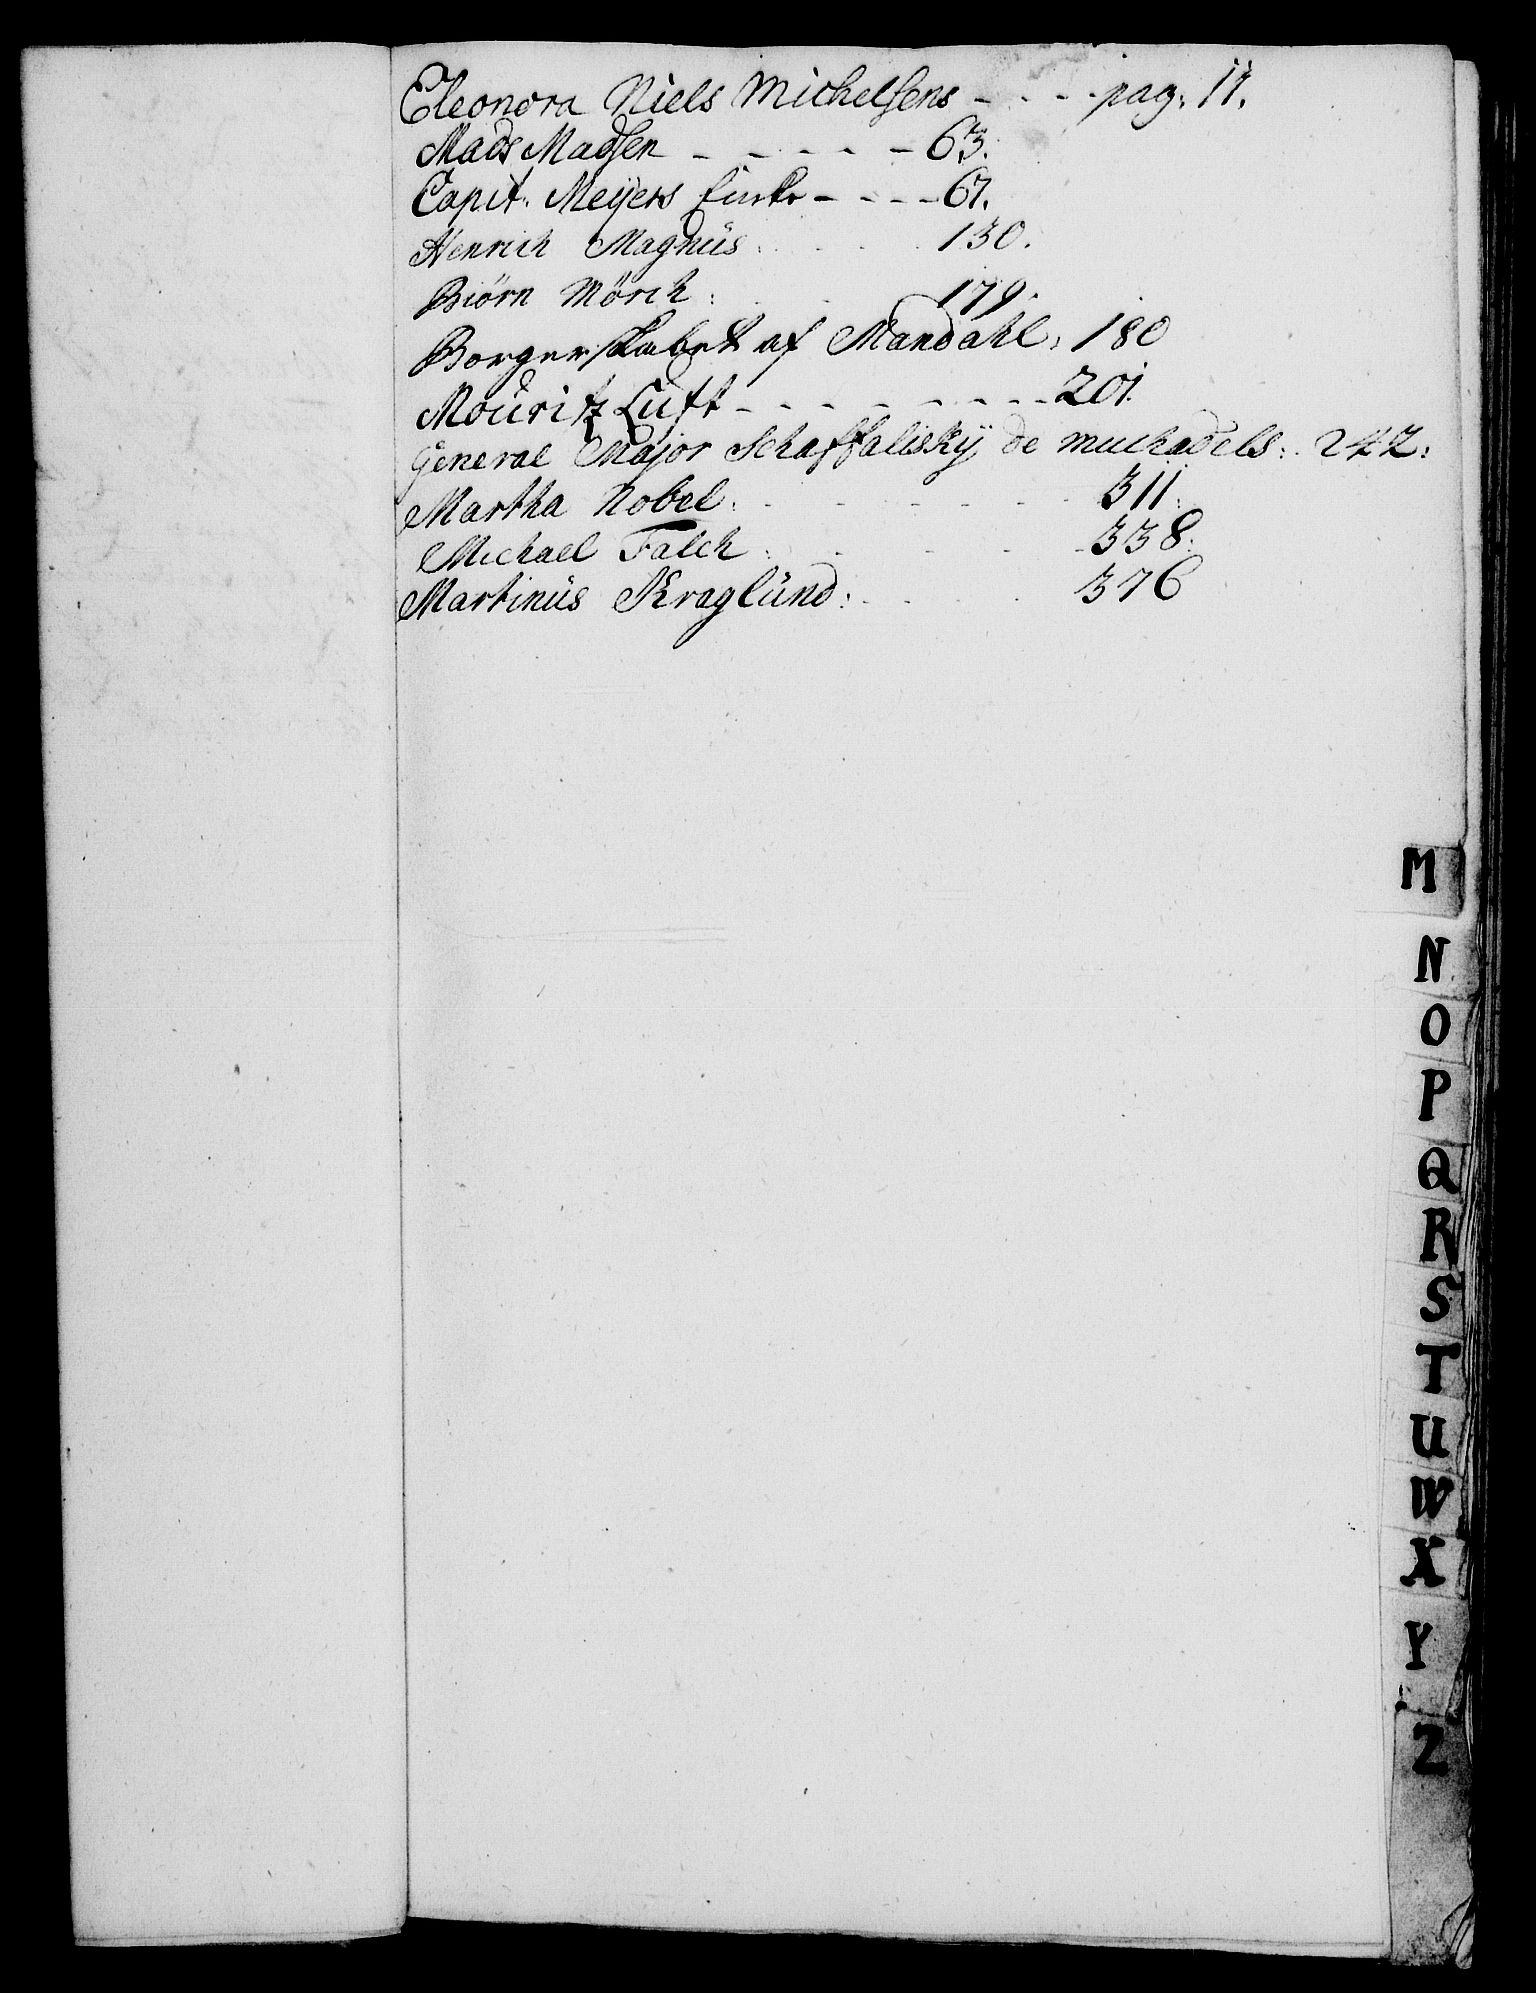 Eleonora Niels Michelsens - - - - pag: 11.
Mads Madsen - - - - - - 63.
Capit. Meÿers Enke - - - - 67.
Henrich Magnüs : . . . . 130.
Biørn Mörch : . . . 179.
Borgerskabet af Mandahl: 180
Moüritz Lüft - - - - - - - - 201.
General Major Schaffaliskÿ de muckadels: . 242:
Martha Nobel: - - - - - - 311:
Michael Falch : - - - - - 338.
Martinüs Kraglünd: - - - . 376
M
N
O
P
Q
R
S
T
U
W
X
Y
Z